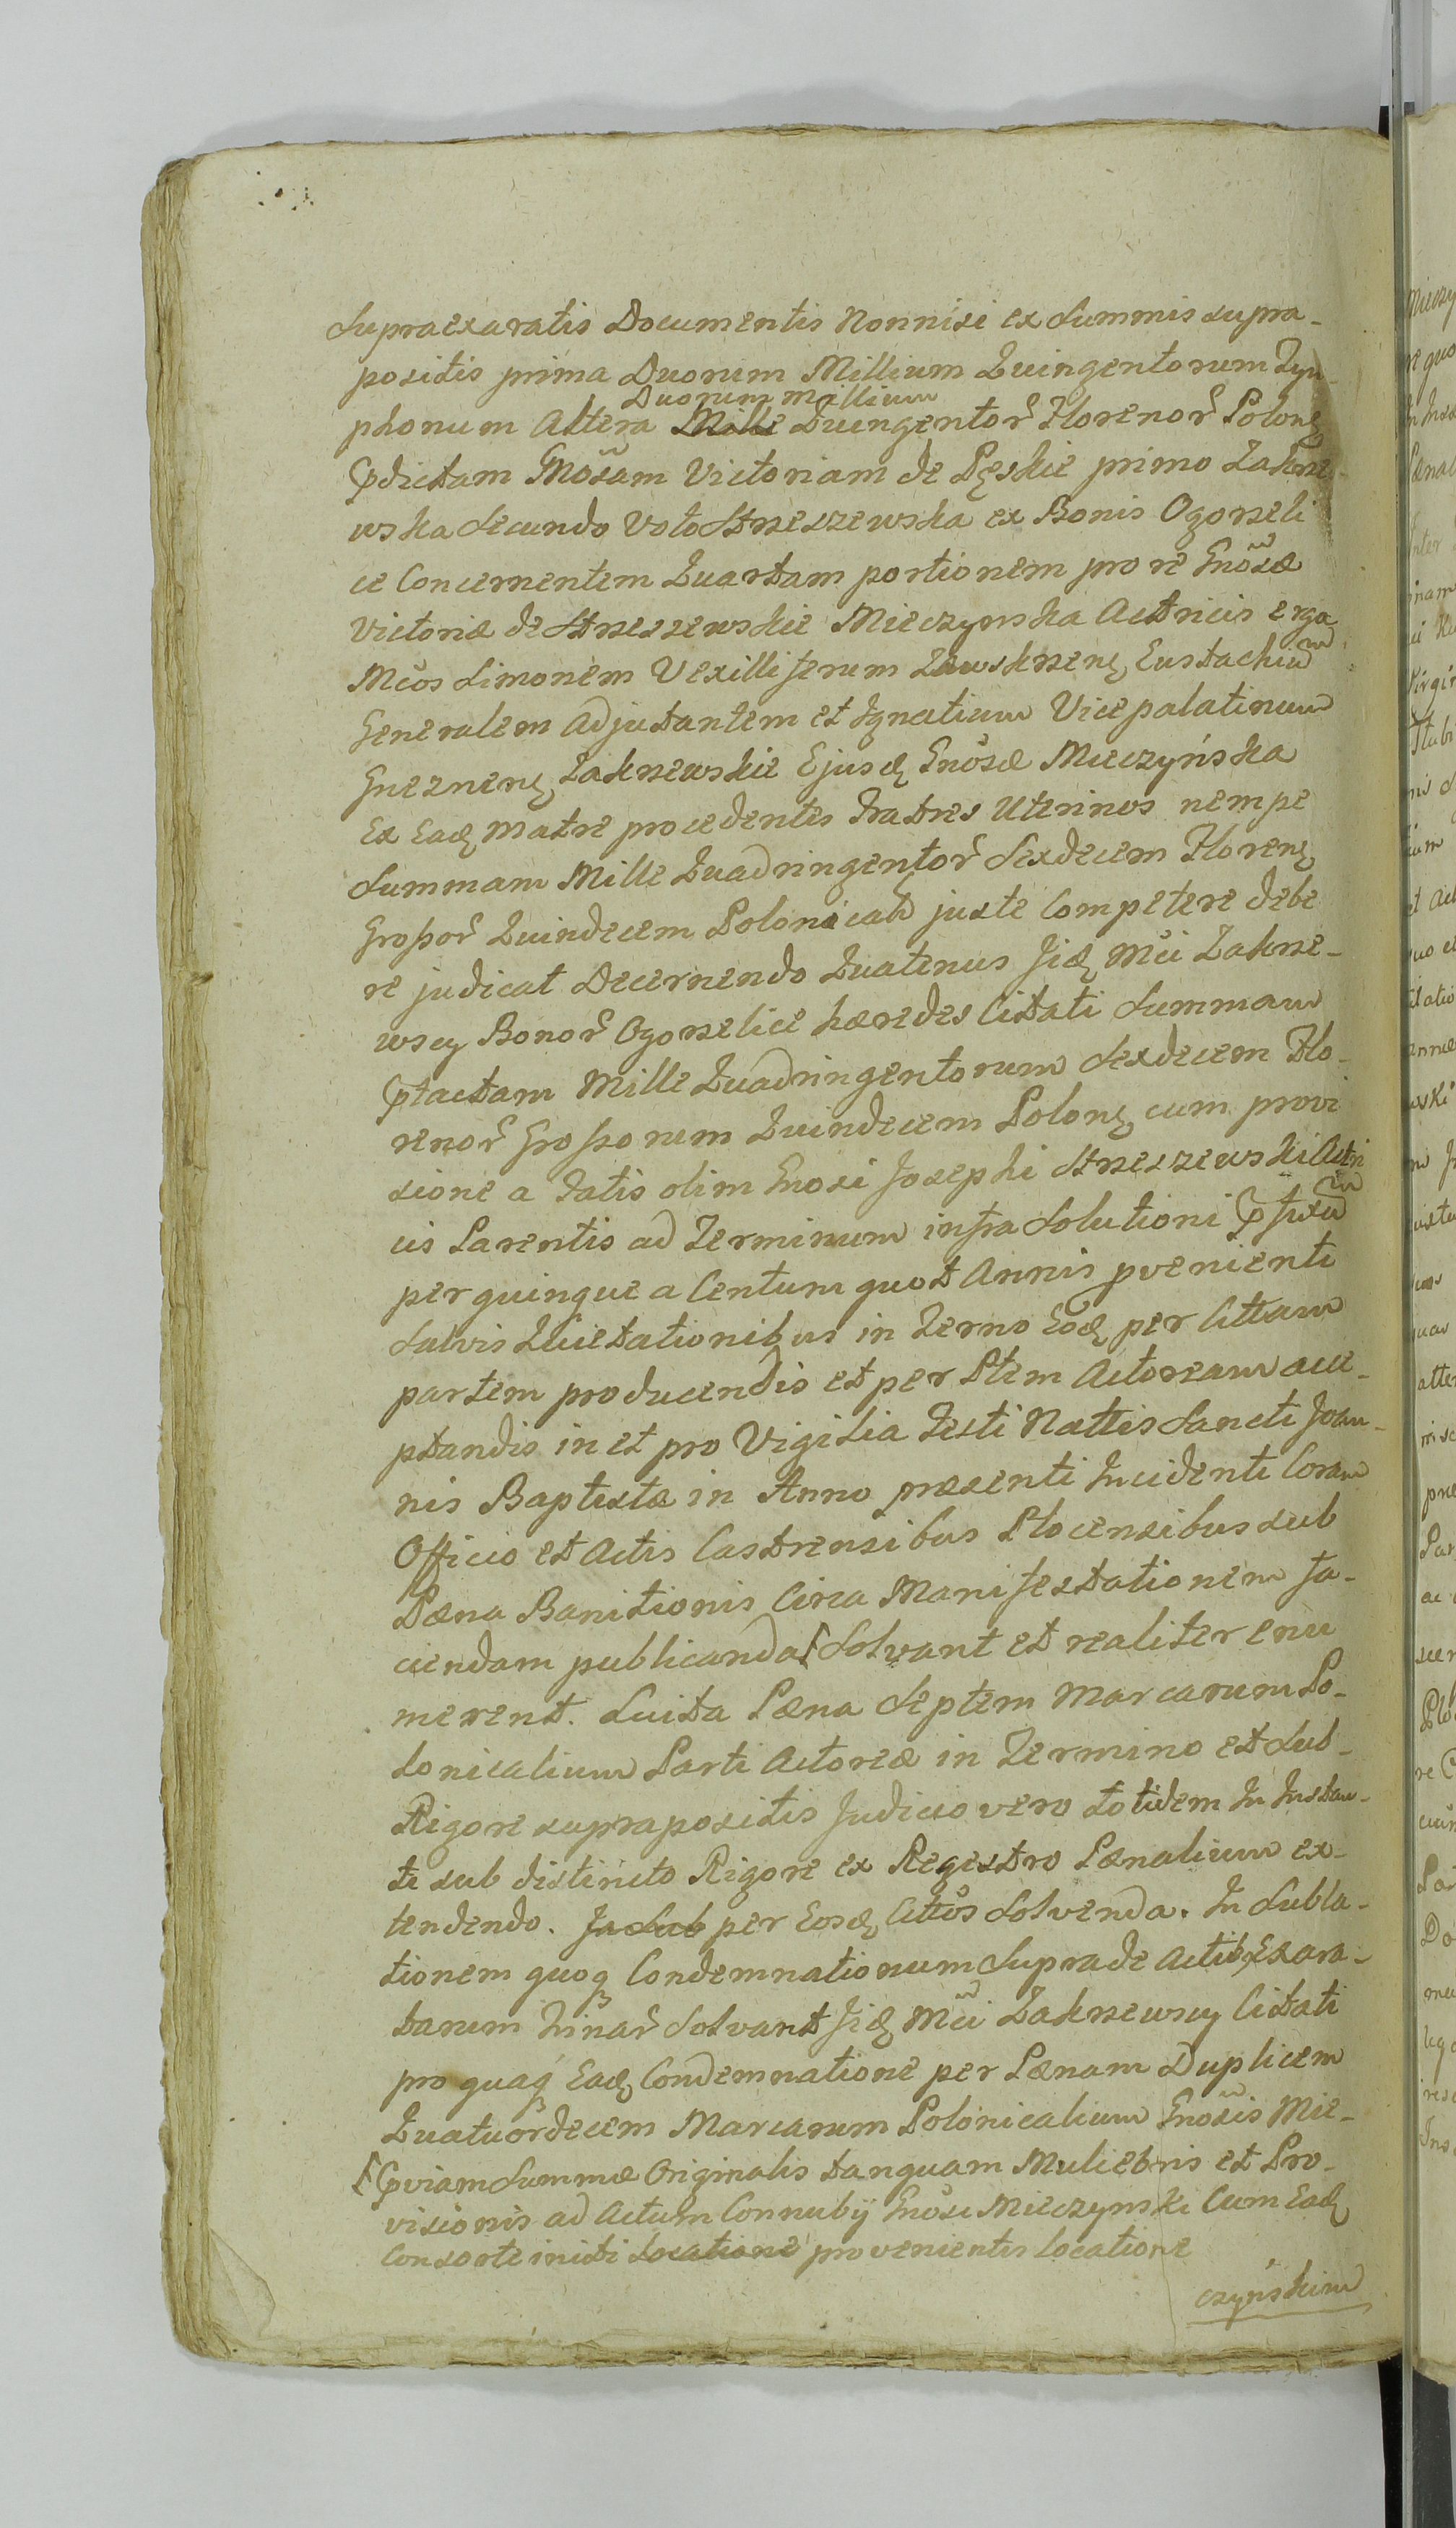 Supraexaratis Documentis Nonnisi ex Summis supra-
positis prima Duorum Millium Quingentorum Tyn-
Duorum Millium
phonum Altera Mille Quingentor Florenor Polon
Pdictam Gnosam Victoriam de Pęskie primo Zakrze-
wska Secundo Voto Strzeszewska ex Bonis Ogorzeli
ce Concernentem Quartam portionem pro re Gnosæ
Victoriæ de Strzeszewskie Mieczynska Actricis erga
Mcos Simonem Vexilliferum Zawskrzen Eustachiu
Generalem Adjutantem et Ignatium Vicepalatinum
Gneznen Zakrzewskie Ejusd Gnosæ Mieczyńska
Ex Ead Matre procedentes Fratres Uterinos nempe
Summam Mille Quadringentor Sexdecem Floren
Grossor Quindecem Polonical juste Competere debe
re judicat Decernendo Quatenus Jid Mci Zakrze-
wscy Bonor Ogorzelice hæredes Citati Summam
Ptactam Mille Quadringentorum Sexdecem Flo-
renor Grossorum Quindecem Polon cum provi
sione a Fatis olim Gnosi Josephi Strzeszewski Actri
cis Parentis ad Terminum infra Solutioni Pfixu
per quinque a Centum quot Annis pvenienti
Salvis Quietationibus in Terno Eod per Cittam
partem producendis et per Ptem Actoream acce-
ptandis in et pro Vigilia Festi Nattis Sancti Joan-
nis Baptistæ in Anno præsenti Incidenti Coram
Officio et Actis Castrensibus Plocensibus sub
Pæna Banitionis Circa Manifestationem fa-
ciendam publicanda Solvant et realiter enu
merent. Luita Pæna Septem Marcarum Po-
lonicalium Parti Actoreæ in Termino et Sub-
Rigore suprapositis Judicio vero totidem In Instan-
ti sub districto Rigore ex Regestro Pænalium ex-
tendendo. In Sub per Eosd Cittos Solvenda. In Subla-
tionem quoq Condemnationum Supra de Actib Exara-
tarum Solvant Jid Mci Zakrzewscy Citati
pro quaq Ead Condemnatione per Pænam Duplicem
Quatuordecem Marcarum Polonicalium Gnosis Mie-
Pviam Summæ Originalis tanquam Muliebris et Pro-
visionis ad Actum Connubij Gnosi Mieczynski Cum Ead
Consorte initi Locatione provenientis locatione
czyńskim